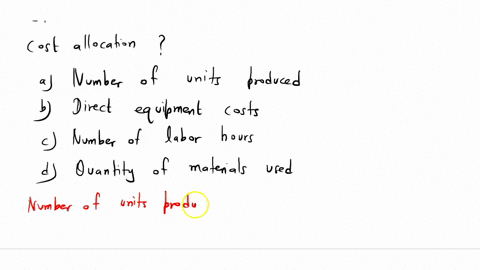 Cost allocation ?
a) Number of units produced
b) Direct equipment costs
c) Number of labor hours
d) Quantity of materials used
Number of units produ